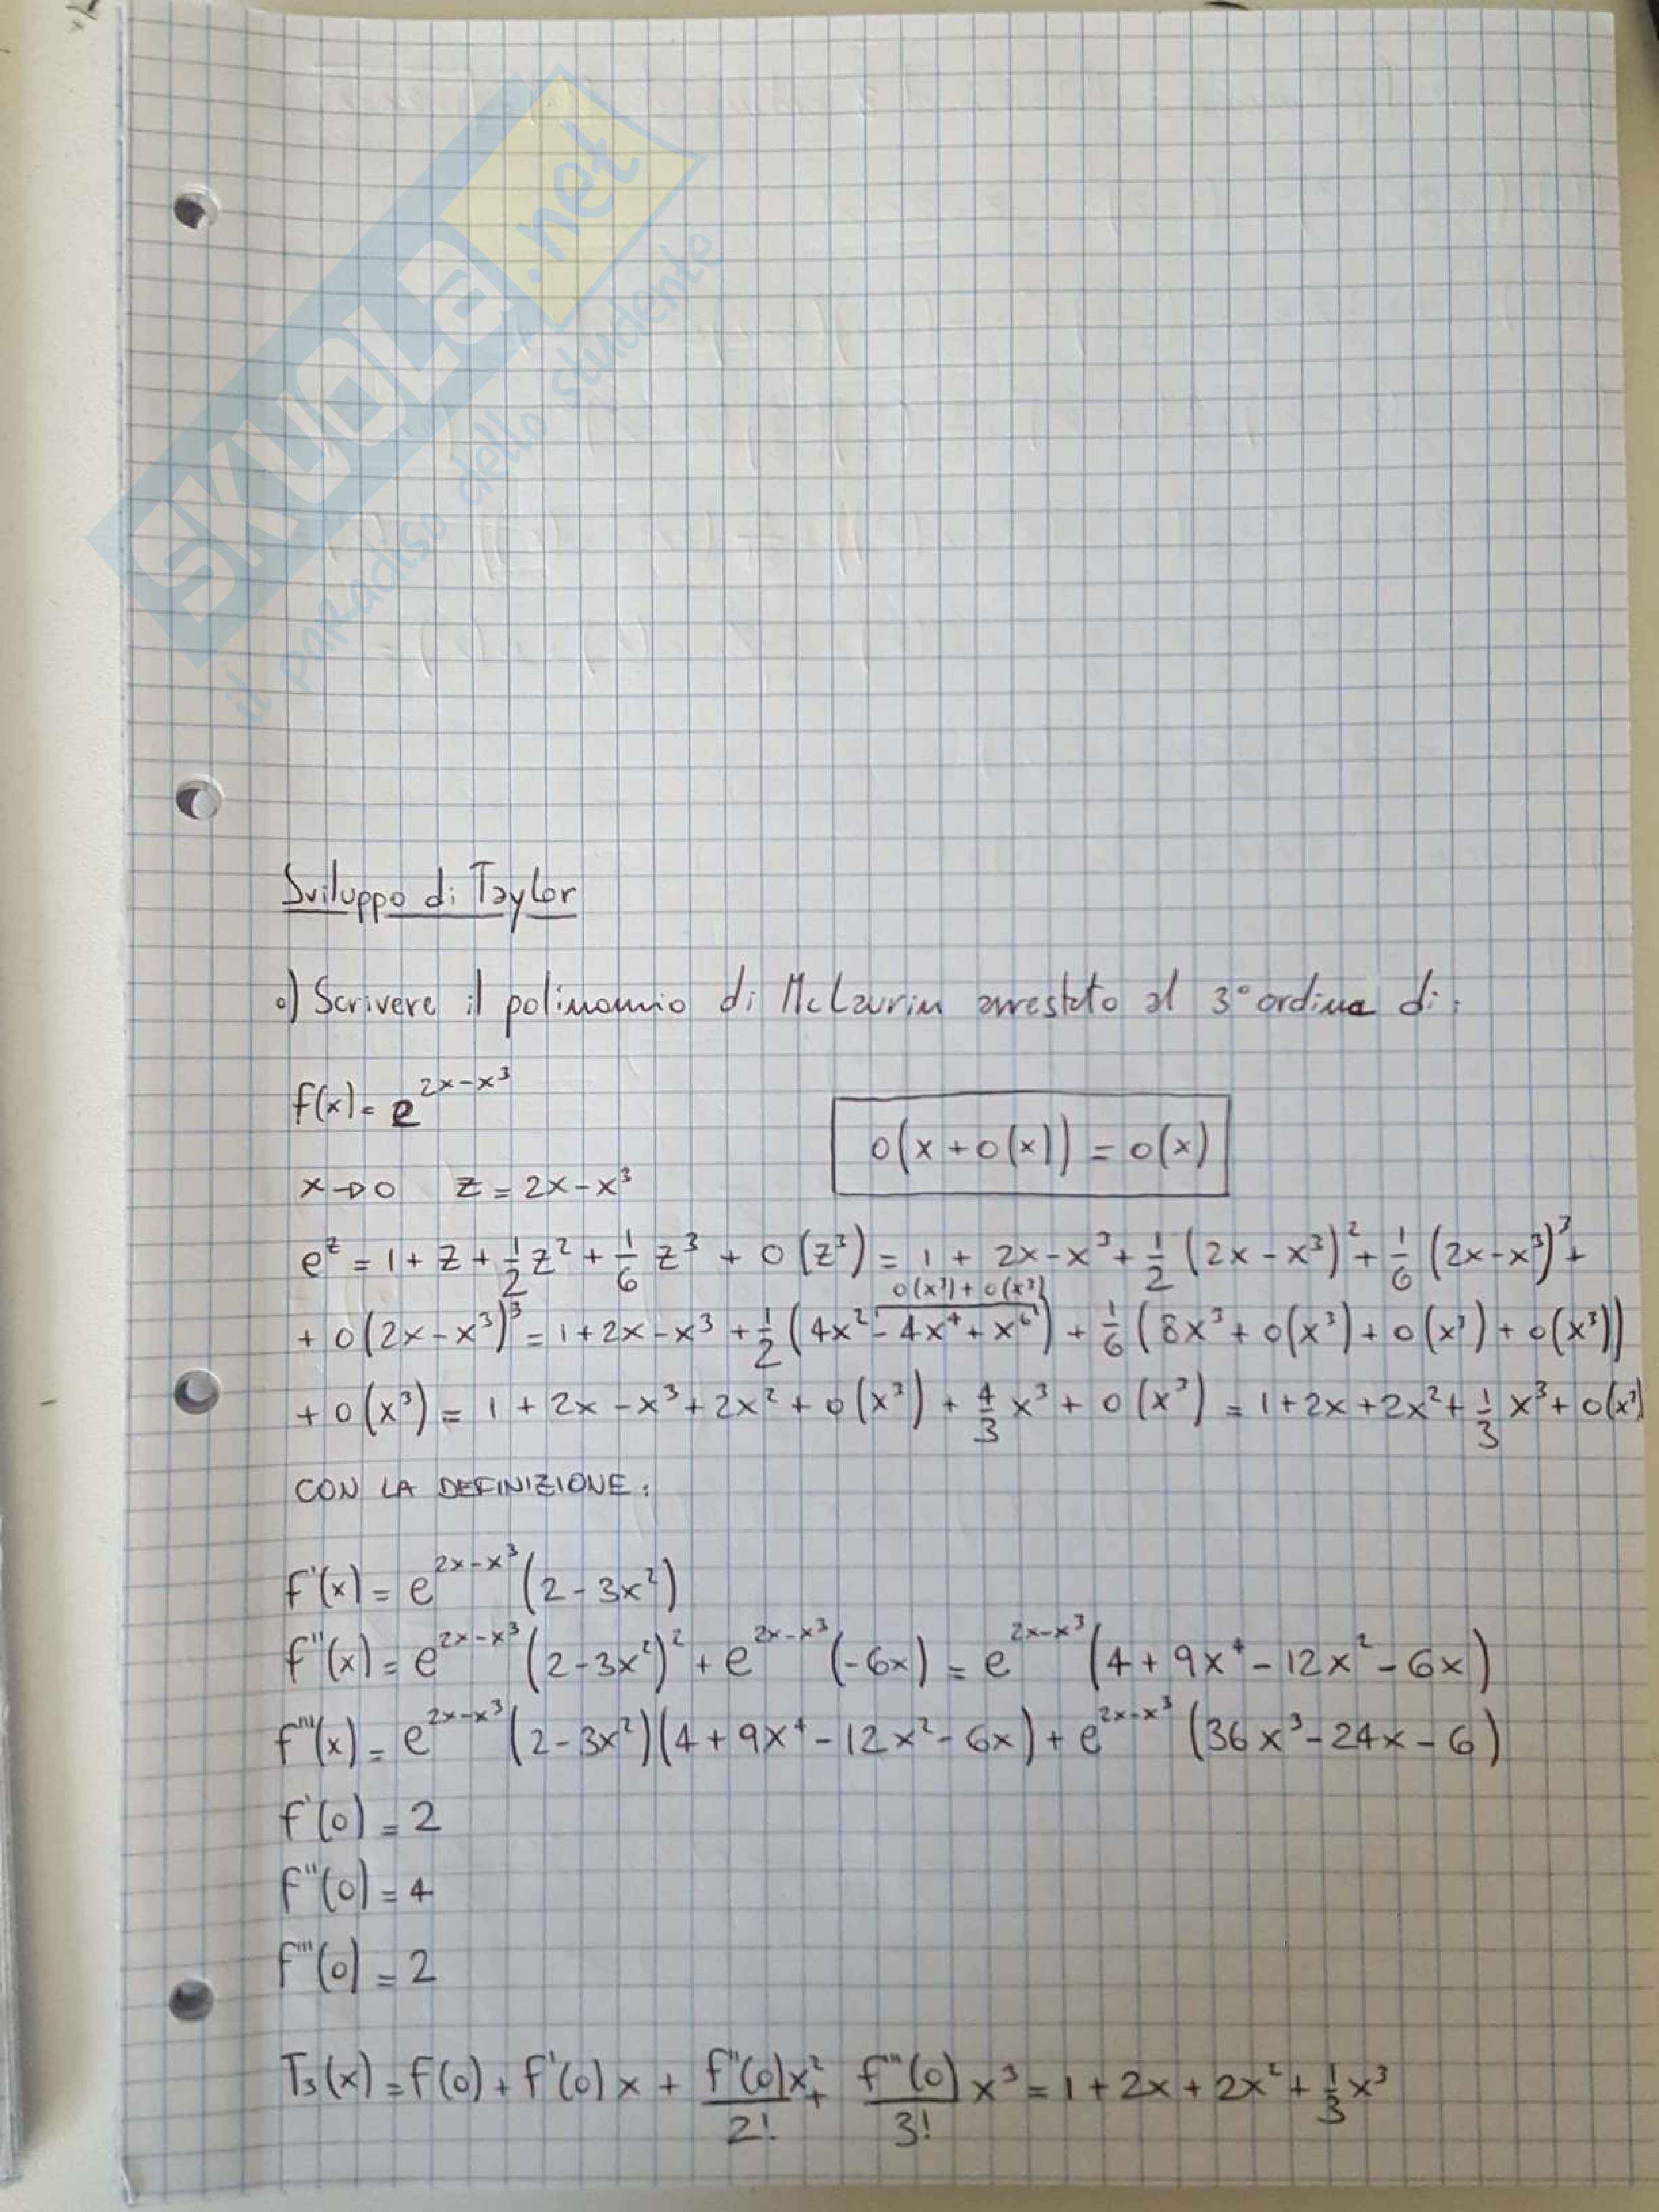 SKUOLA.net
il paradiso dello studente
Sviluppo di Taylor
o) Scrivere il polinomio di McLaurin arrestato al 3° ordine di:
f(x) = e^{2x-x³}
o(x + o(x)) = o(x)
x → 0 z = 2x - x³
e^z = 1 + z + 1/2 z² + 1/6 z³ + o(z³) = 1 + 2x - x³ + 1/2 (2x - x³)² + 1/6 (2x - x³)³ +
o(x³) + o(x³)
+ o(2x - x³)³ = 1 + 2x - x³ + 1/2 (4x² - 4x⁴ + x⁶) + 1/6 (8x³ + o(x³) + o(x³) + o(x³))
+ o(x³) = 1 + 2x - x³ + 2x² + o(x³) + 4/3 x³ + o(x³) = 1 + 2x + 2x² + 1/3 x³ + o(x³)
CON LA DEFINIZIONE:
f'(x) = e^{2x-x³} (2 - 3x²)
f''(x) = e^{2x-x³} (2 - 3x²)² + e^{2x-x³} (-6x) = e^{2x-x³} (4 + 9x⁴ - 12x² - 6x)
f'''(x) = e^{2x-x³} (2 - 3x²)(4 + 9x⁴ - 12x² - 6x) + e^{2x-x³} (36x³ - 24x - 6)
f'(0) = 2
f''(0) = 4
f'''(0) = 2
T₃(x) = f(0) + f'(0) x + f''(0)/2! x² + f'''(0)/3! x³ = 1 + 2x + 2x² + 1/3 x³